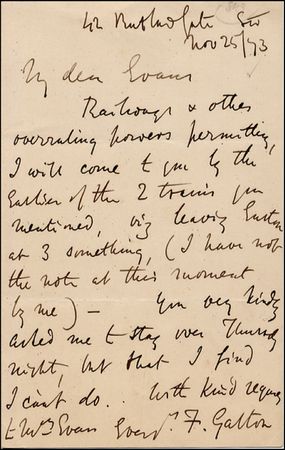 42 Rutland Gate SW
Nov 25/73
My dear Evans
Railways & other
overruling powers permitting,
I will come to you by the
Earlier of the 2 trains you
mentioned, viz leaving Euston
at 3 something, (I have not
the note at this moment
by me) – You very kindly
asked me to stay over Thursday
night, but that I find
I can't do.. With kind regards
to Mrs Evans Ever yrs F. Galton